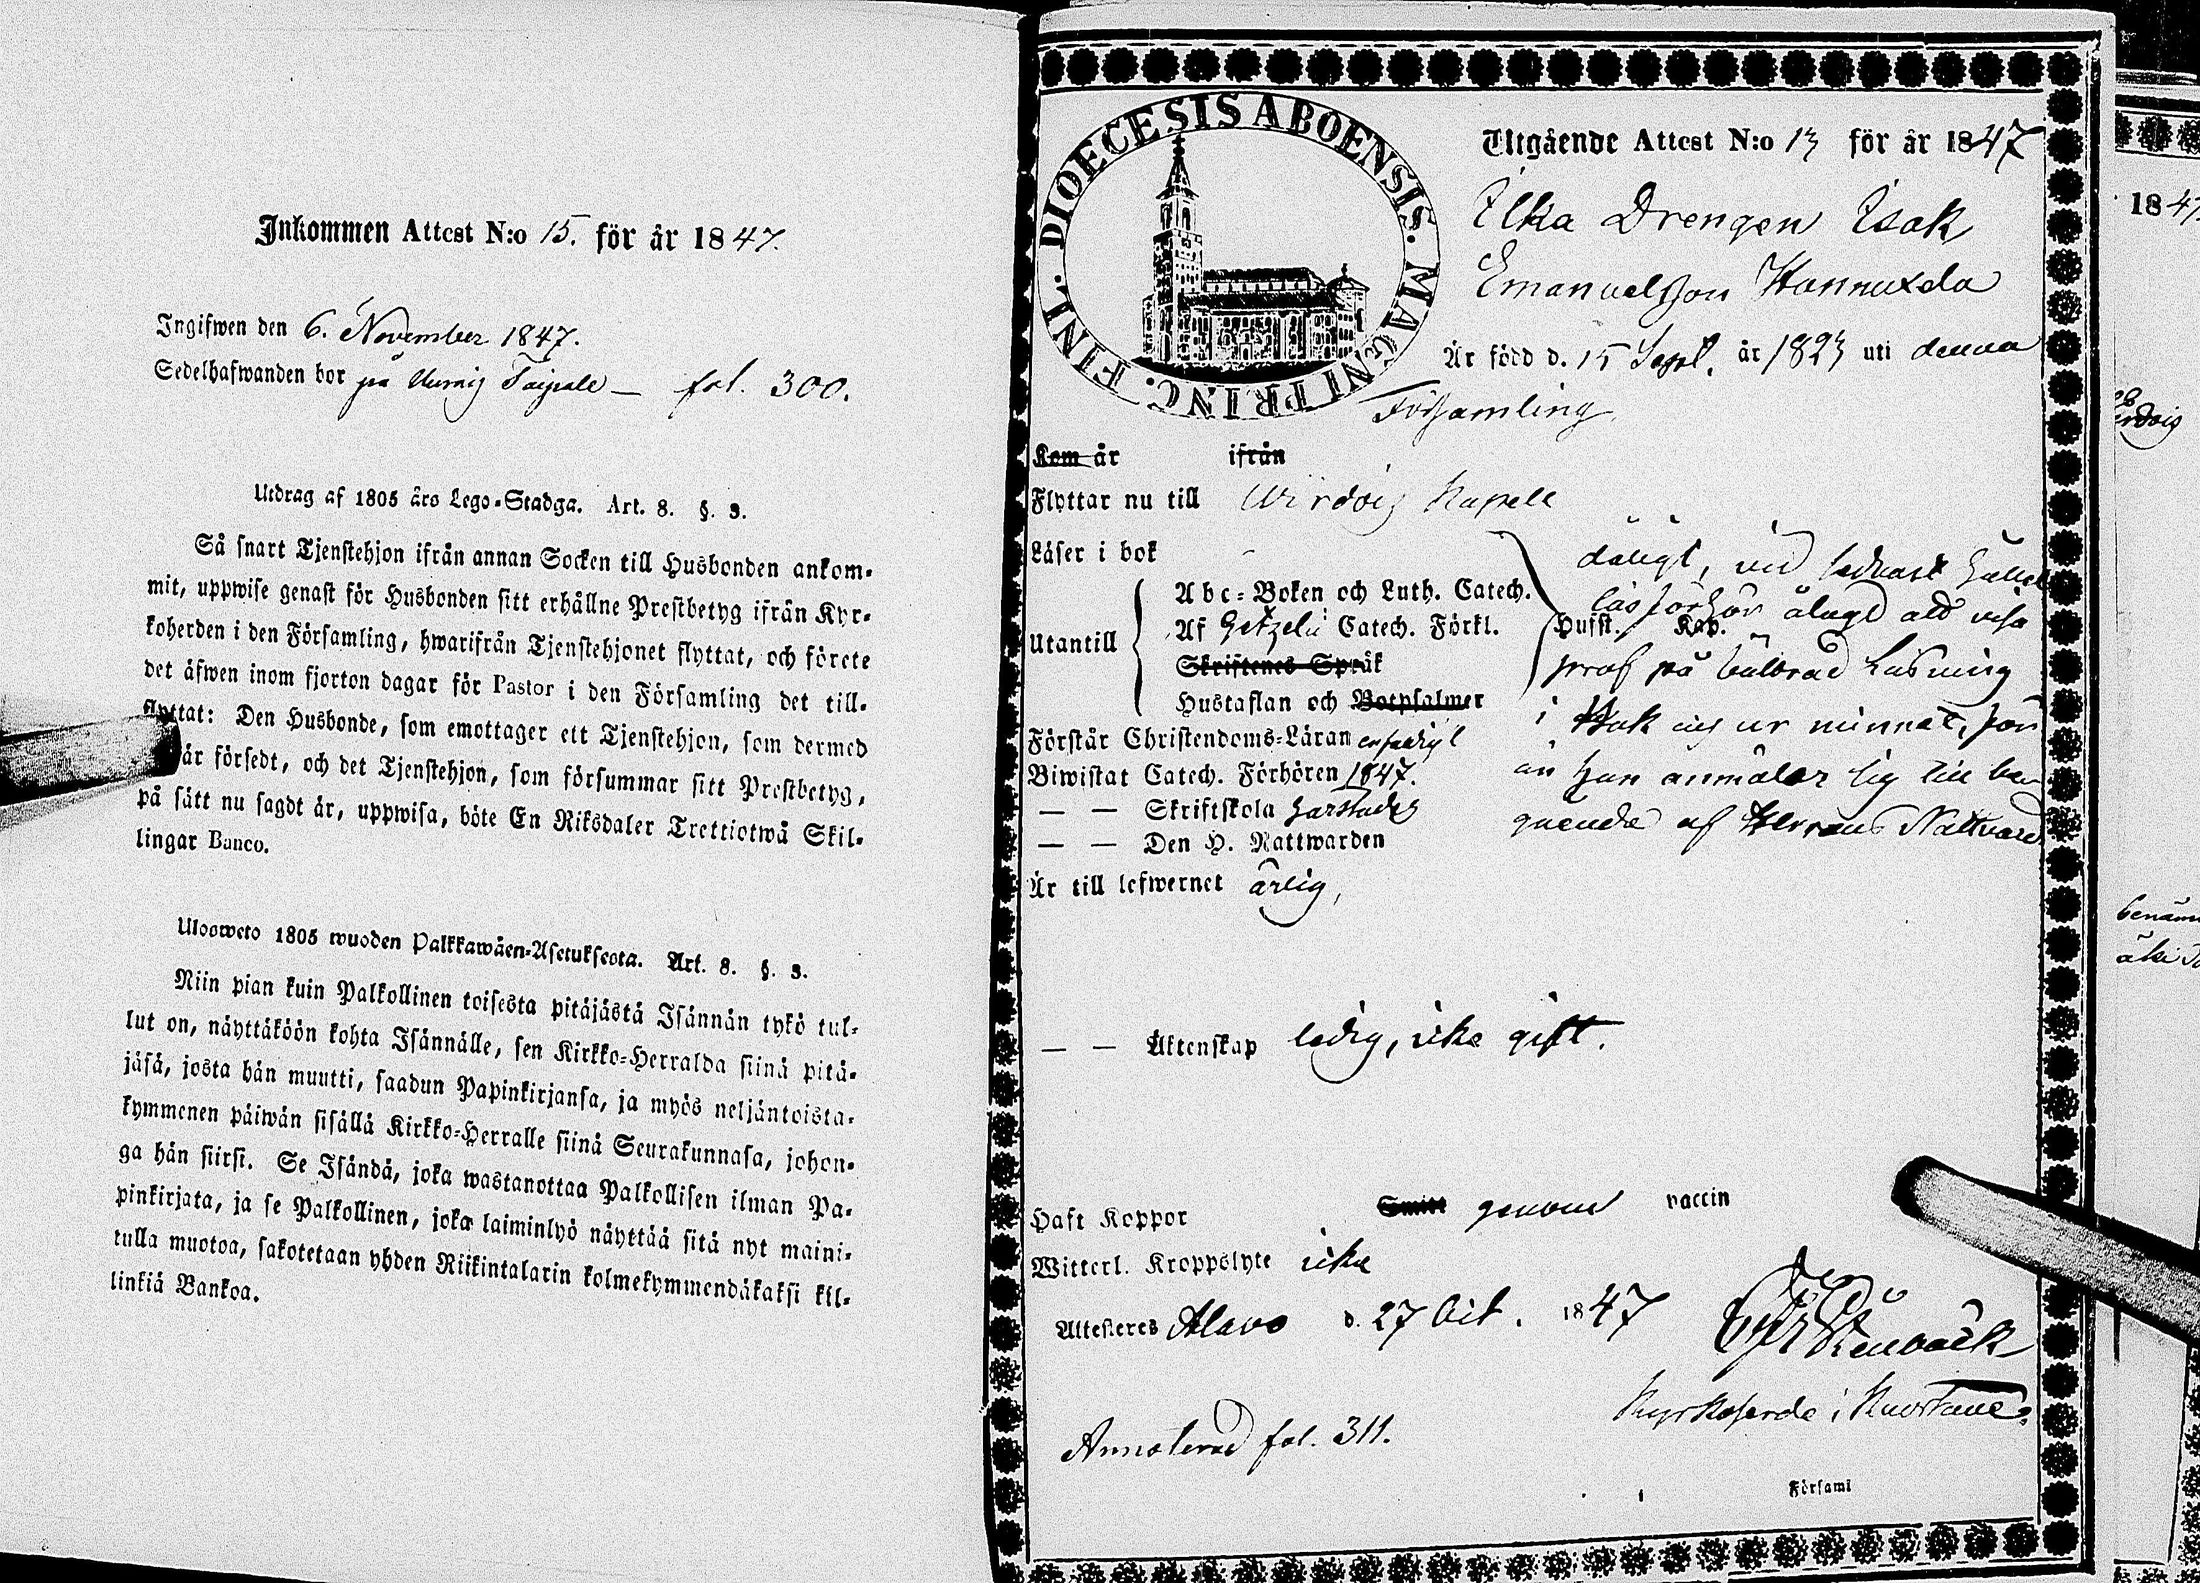 Inkommen Attest N:o 15. för år 1847.
Ingifwen den 6. November 1847.
Sedelhafwanden bor på Taipale — fol. 300.
Utdrag af 1805 års Lego-Stadga. Art. 8. §. 3.
Så snart Tjenstehjon ifrån annan Socken till Husbonden ankom-
mit, uppwise genast för Husbonden sitt erhållne Prestbetyg ifrån Kyr-
koherden i den Församling, hwarifrån Tjenstehjonet flyttat, och förete
det äfwen inom fjorton dagar för Pastor i den Församling det till-
flyttat: Den Husbonde, som emottager ett Tjenstehjon, som dermed
är försedt, och det Tjenstehjon, som försummar sitt Prestbetyg,
på sätt nu sagdt är, uppwisa, böte En Riksdaler Trettiotwå Skil-
lingar Banco.
Ulosweto 1805 wuoden Palkkawäen-Asetuksesta. Art. 8. §. 3.
Niin pian kuin Palkollinen toisesta pitäjästä Isännän tykö tul-
lut on, näyttäköön kohta Isännälle, sen Kirkko-Herralda siinä pitä-
jäsä, josta hän muutti, saadun Papinkirjansa, ja myös neljäntoista-
kymmenen päiwän sisällä Kirkko-Herralle siinä Seurakunnasa, johon-
ga hän siirsi. Se Isändä, joka wastanottaa Palkollisen ilman Pa-
pinkirjata, ja se Palkollinen, joka laiminlyö näyttää sitä nyt maini-
tulla muotoa, sakotetaan yhden Riikintalarin kolmekymmendäkaksi kil-
linkiä Bankoa.
FINL. DIOECESIS ABOENSIS. MAGNI PRINC.
Utgående Attest N:o 13 för år 1847
Ilka Drengen Isak
Emanuelsson Hannuxela
Är född d. 15 Sept. år 1823 uti denna
Församling
Kom år ifrån
Flyttar nu till Wirdois Kapell
Läser i bok
Utantill
Abc-Boken och Luth. Catech.
Af Getzelii Catech. Förkl.
Skriftenes Språk
Hustaflan och Botpsalmer
Hufst. Kap.
dåligt, vid
läsförhör ålagd att visa
prof på bättrad läsning
i bok och ur minnet, för
än han anmäler sig till be-
gående af Herrans Nattvard
Förstår Christendoms-Läran enfaldigt
Biwistat Catech. Förhören 1847.
— — Skriftskola
— — Den H. Nattwarden
Är till lefwernet ärlig,
— — Äktenskap ledig, icke gift.
Haft Koppor Smitt genom vaccin
Witterl. Kroppslyte icke
Attesteres Alavo d. 27 Oct. 1847
Stenbäck
Kyrkoherde i Kuortane.
Annoterad fol. 311.
Församl
1847